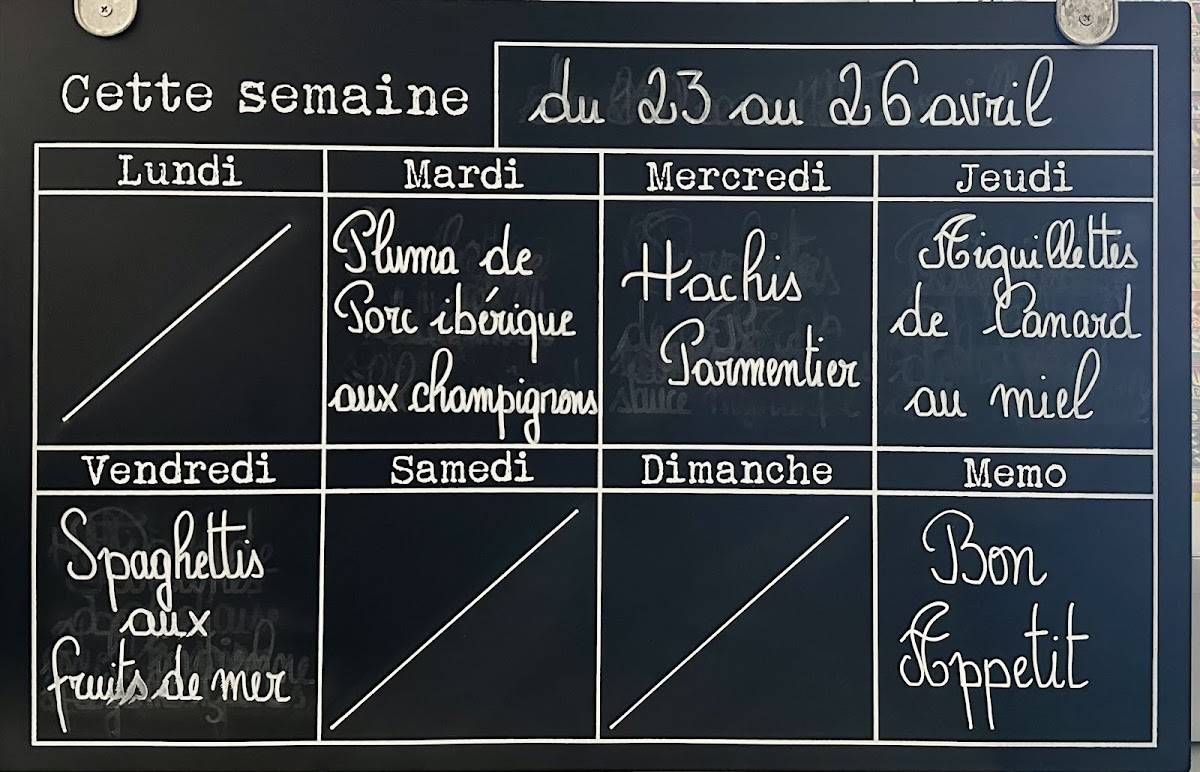 Cette semaine
du 23 au 26 avril
Lundi
Mardi
Mercredi
Jeudi
Pluma de
Porc ibérique
aux champignons
Hachis
Parmentier
Aiguillettes
de Canard
au miel
Vendredi
Samedi
Dimanche
Memo
Spaghettis
aux
fruits de mer
Bon
Appetit